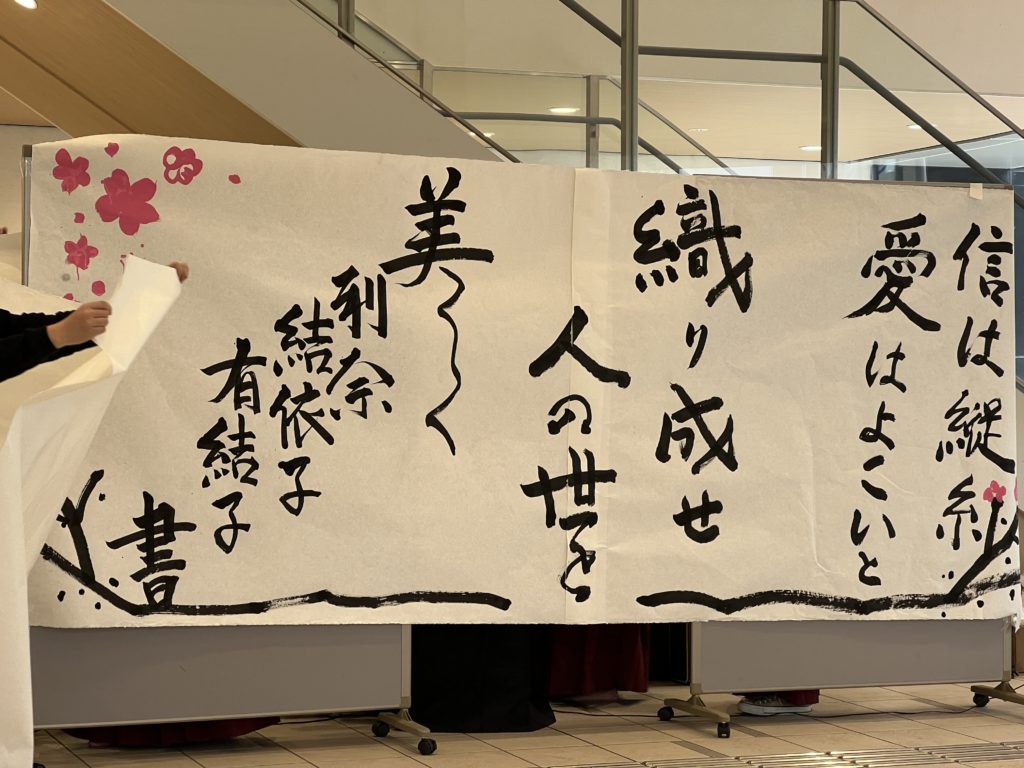 信は縦糸
愛はよこいと
織り成せ
人の世を
美しく
利奈
結依子
有結子
書